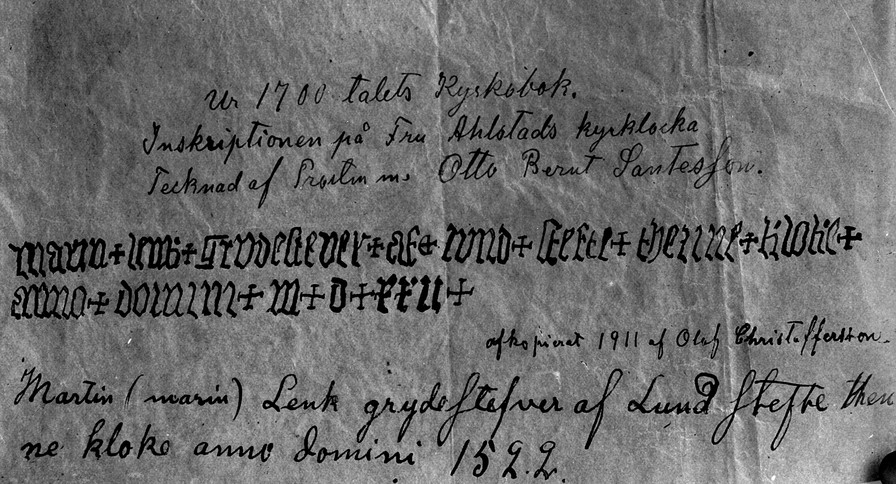 Ur 1700 talets Kyrkobok.
Inskriptionen på Fru Ahlstads kyrklocka
Tecknad af Prosten m. Otto Bernt Santesson.
marin + lenk + grydestever + af + lvnd + stefte + thenne + kloke +
anno + domini + m + d + xxii +
afkopierat 1911 af Olof Christoffersson.
Martin (marin) Lenk grydestefver af Lund stefte then
ne kloke anno domini 1522.